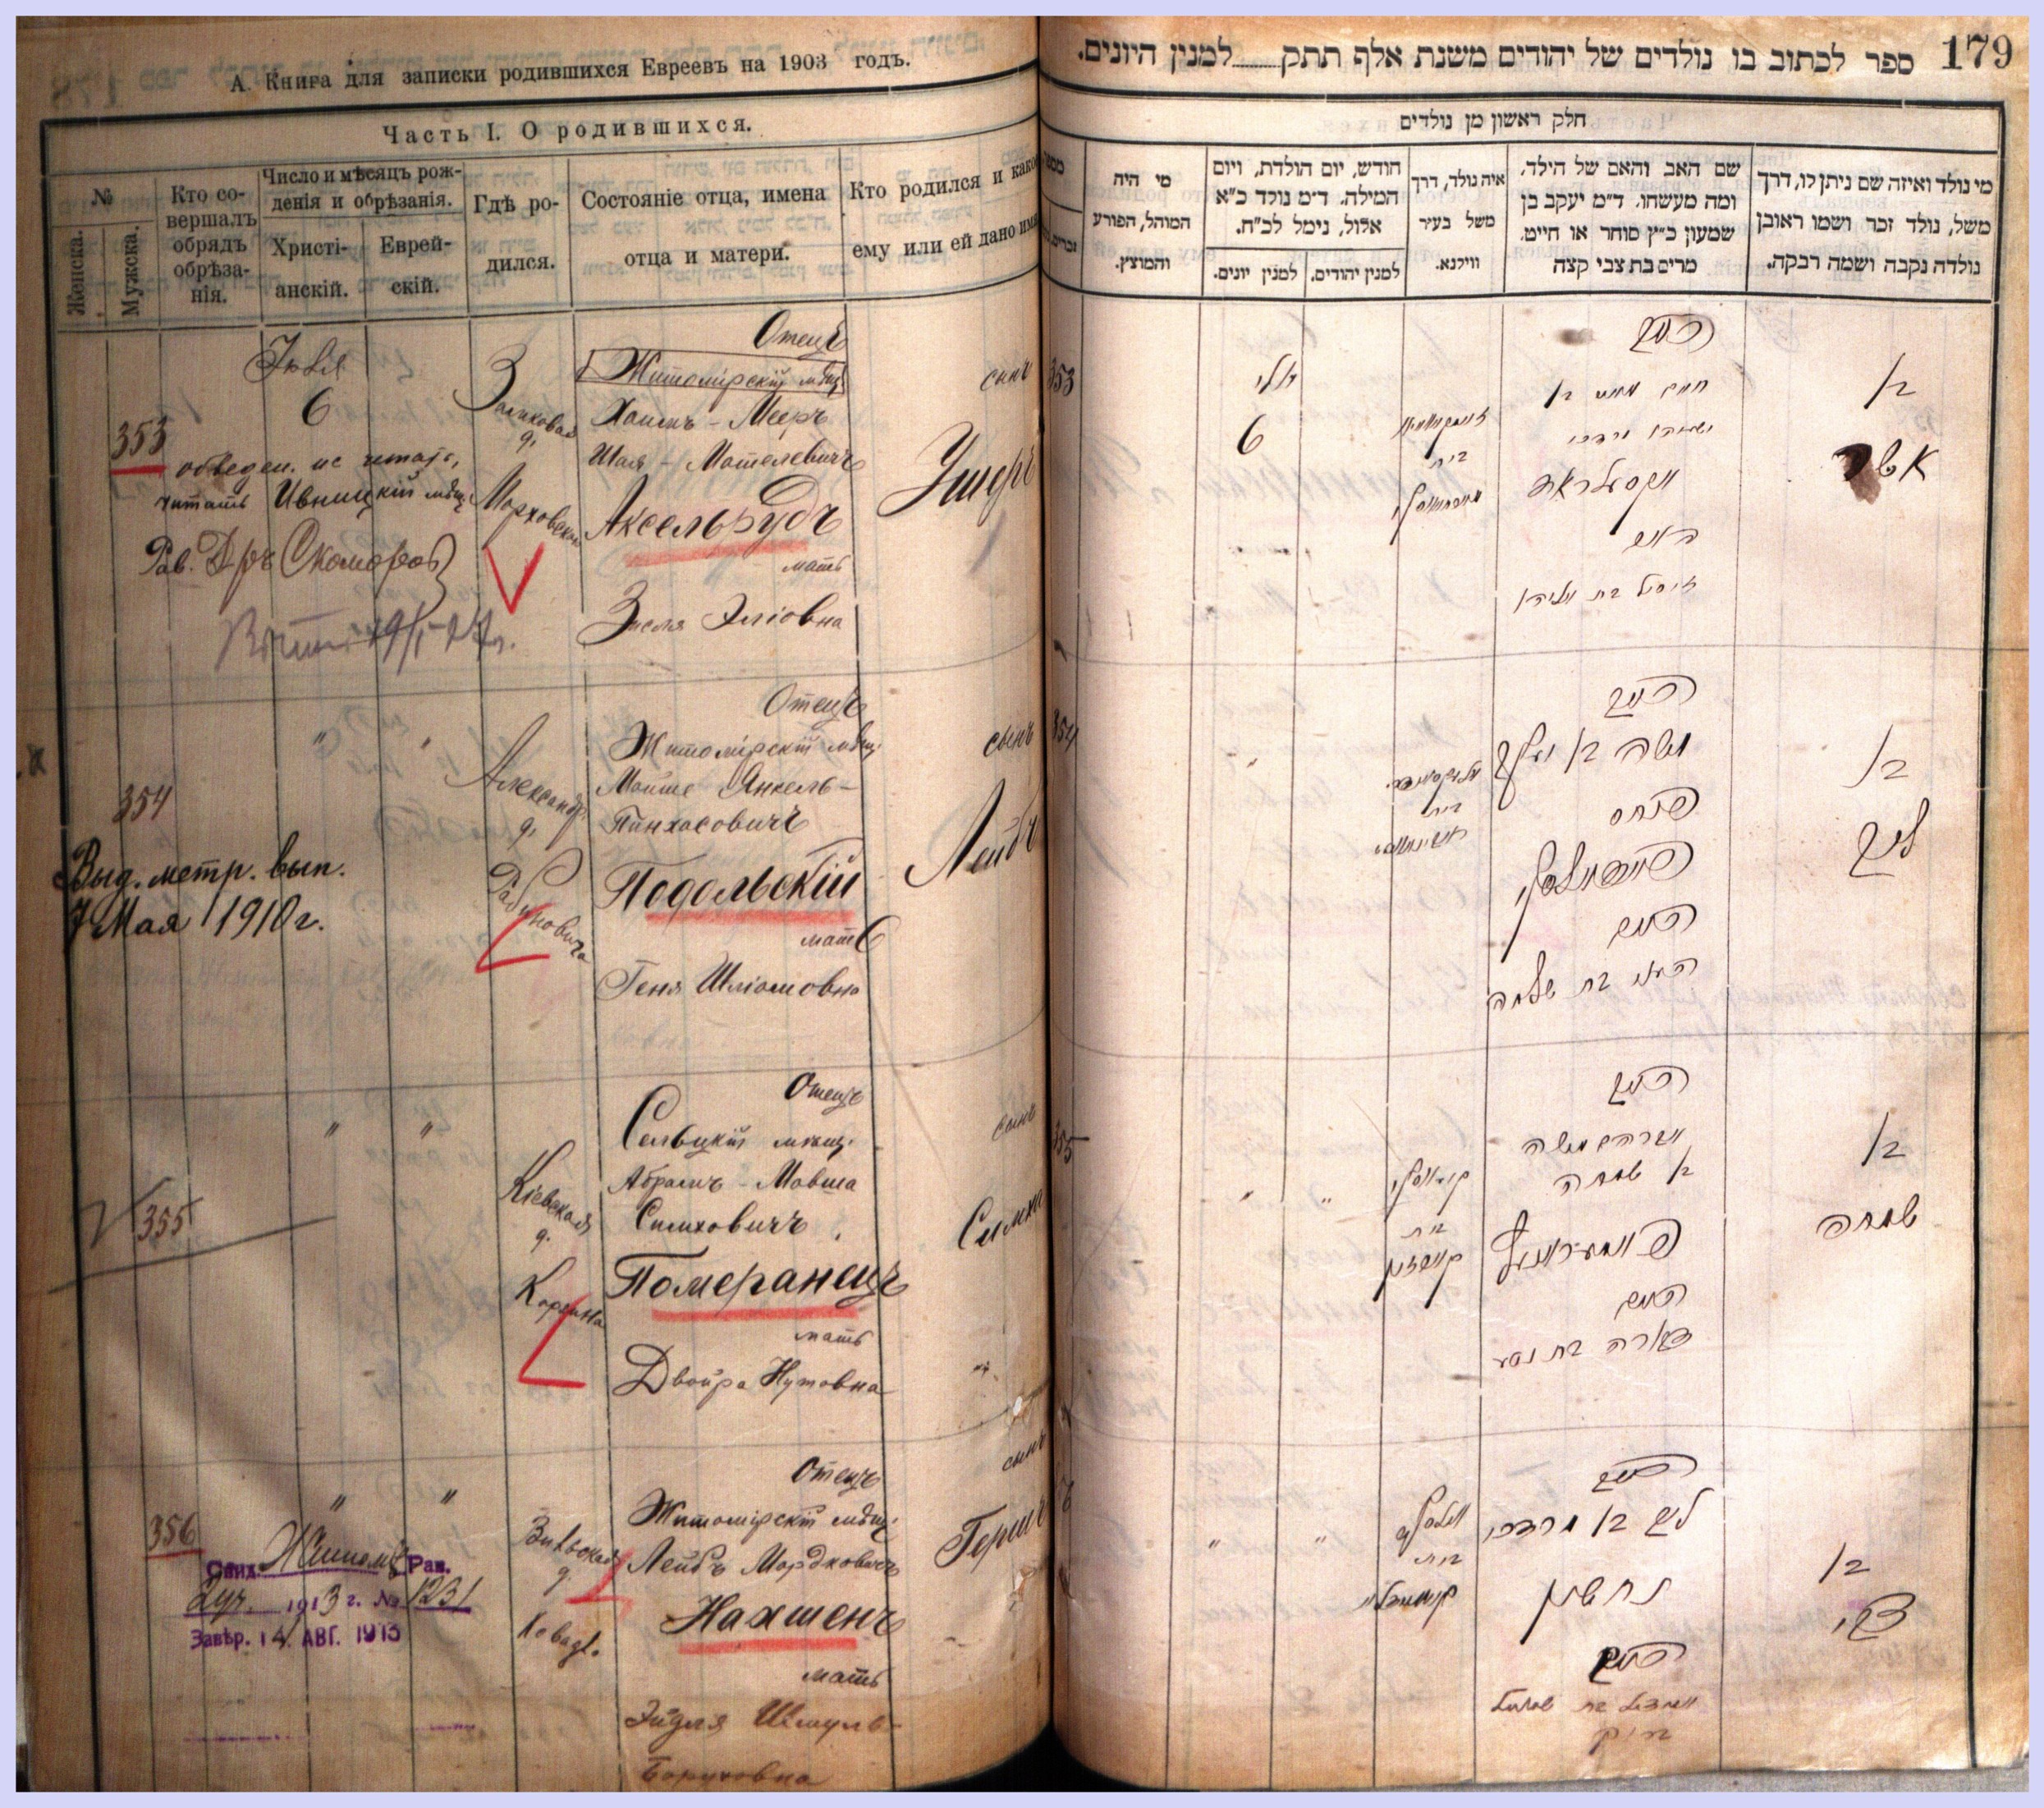 А. Книга для записки родившихся Евреевъ на 1903 годъ.
Часть I. О родившихся.
№
Женска.
Мужска.
Кто со-
вершалъ
обрядъ
обрѣза-
нія.
Число и мѣсяцъ рож-
денія и обрѣзанія.
Христі-
анскій.
Еврей-
скій.
Гдѣ ро-
дился.
Состояніе отца, имена
отца и матери.
Кто родился и какое
ему или ей дано имя
353
Іюля
6
обведен. не читать,
читать Ивницкій мѣщ.
Рав. Д-ръ Скоморов
Отецъ
Житомірскій мѣщ.
Хаимъ - Мееръ
Шая - Мотелевичъ
Аксельрудъ
мать
Зисля Эліовна
сынъ
Ушеръ
354
"
"
Выд. метр. вып.
7 Мая 1910 г.
Александр.
д.
Рабиновича
Отецъ
Житомірскій мѣщ.
Мойше Янкель-
Пинхасовичъ
Подольскій
мать
Геня Шліомовна
сынъ
Лейбъ
355
"
"
Кіевская
д.
Отецъ
мѣщ.
Абрамъ - Мовша
Симховичъ
Померанецъ
мать
Двойра Нутовна
сынъ
Симха
356
"
"
Свид. Житом. Рав.
1913 г. № 1231
Завѣр. 14 АВГ. 1913
Отецъ
Житомірскій мѣщ.
Лейбъ Мордковичъ
Нахшенъ
мать
Эйдля Шмуль-
Боруховна
сынъ
Гершъ
179
ספר לכתוב בו נולדים של יהודים משנת אלף תתק למנין היונים.
חלק ראשון מן נולדים
מי נולד ואיזה שם ניתן לו, דרך
משל, נולד זכר ושמו ראובן
נולדה נקבה ושמה רבקה.
שם האב והאם של הילד,
ומה מעשהו. ד"מ יעקב בן
שמעון כ"ץ סוחר או חייט,
מרים בת צבי קצה
איה נולד, דרך
משל בעיר
ווילנא.
חודש, יום הולדת, ויום
המילה. ד"מ נולד כ"א
אלול, נימל לכ"ח.
למנין יהודים.
למנין יונים.
מי היה
המוהל, הפורע
והמוצץ.
353
יולי
6
האב
חיים מאיר בן
ישעיהו מרדכי
אקסעלראד
האם
זיסל בת אליהו
בן
אשר
354
"
האב
משה יעקב בן
פנחס
פאדאלסקי
האם
העני בת שלמה
בן
ליב
355
"
"
האב
אברהם משה
בן שמחה
פאמעראנעץ
האם
דבורה בת נטע
בן
שמחה
"
"
האב
ליב בן מרדכי
נחשון
האם
איידל בת שמואל
ברוך
בן
צבי